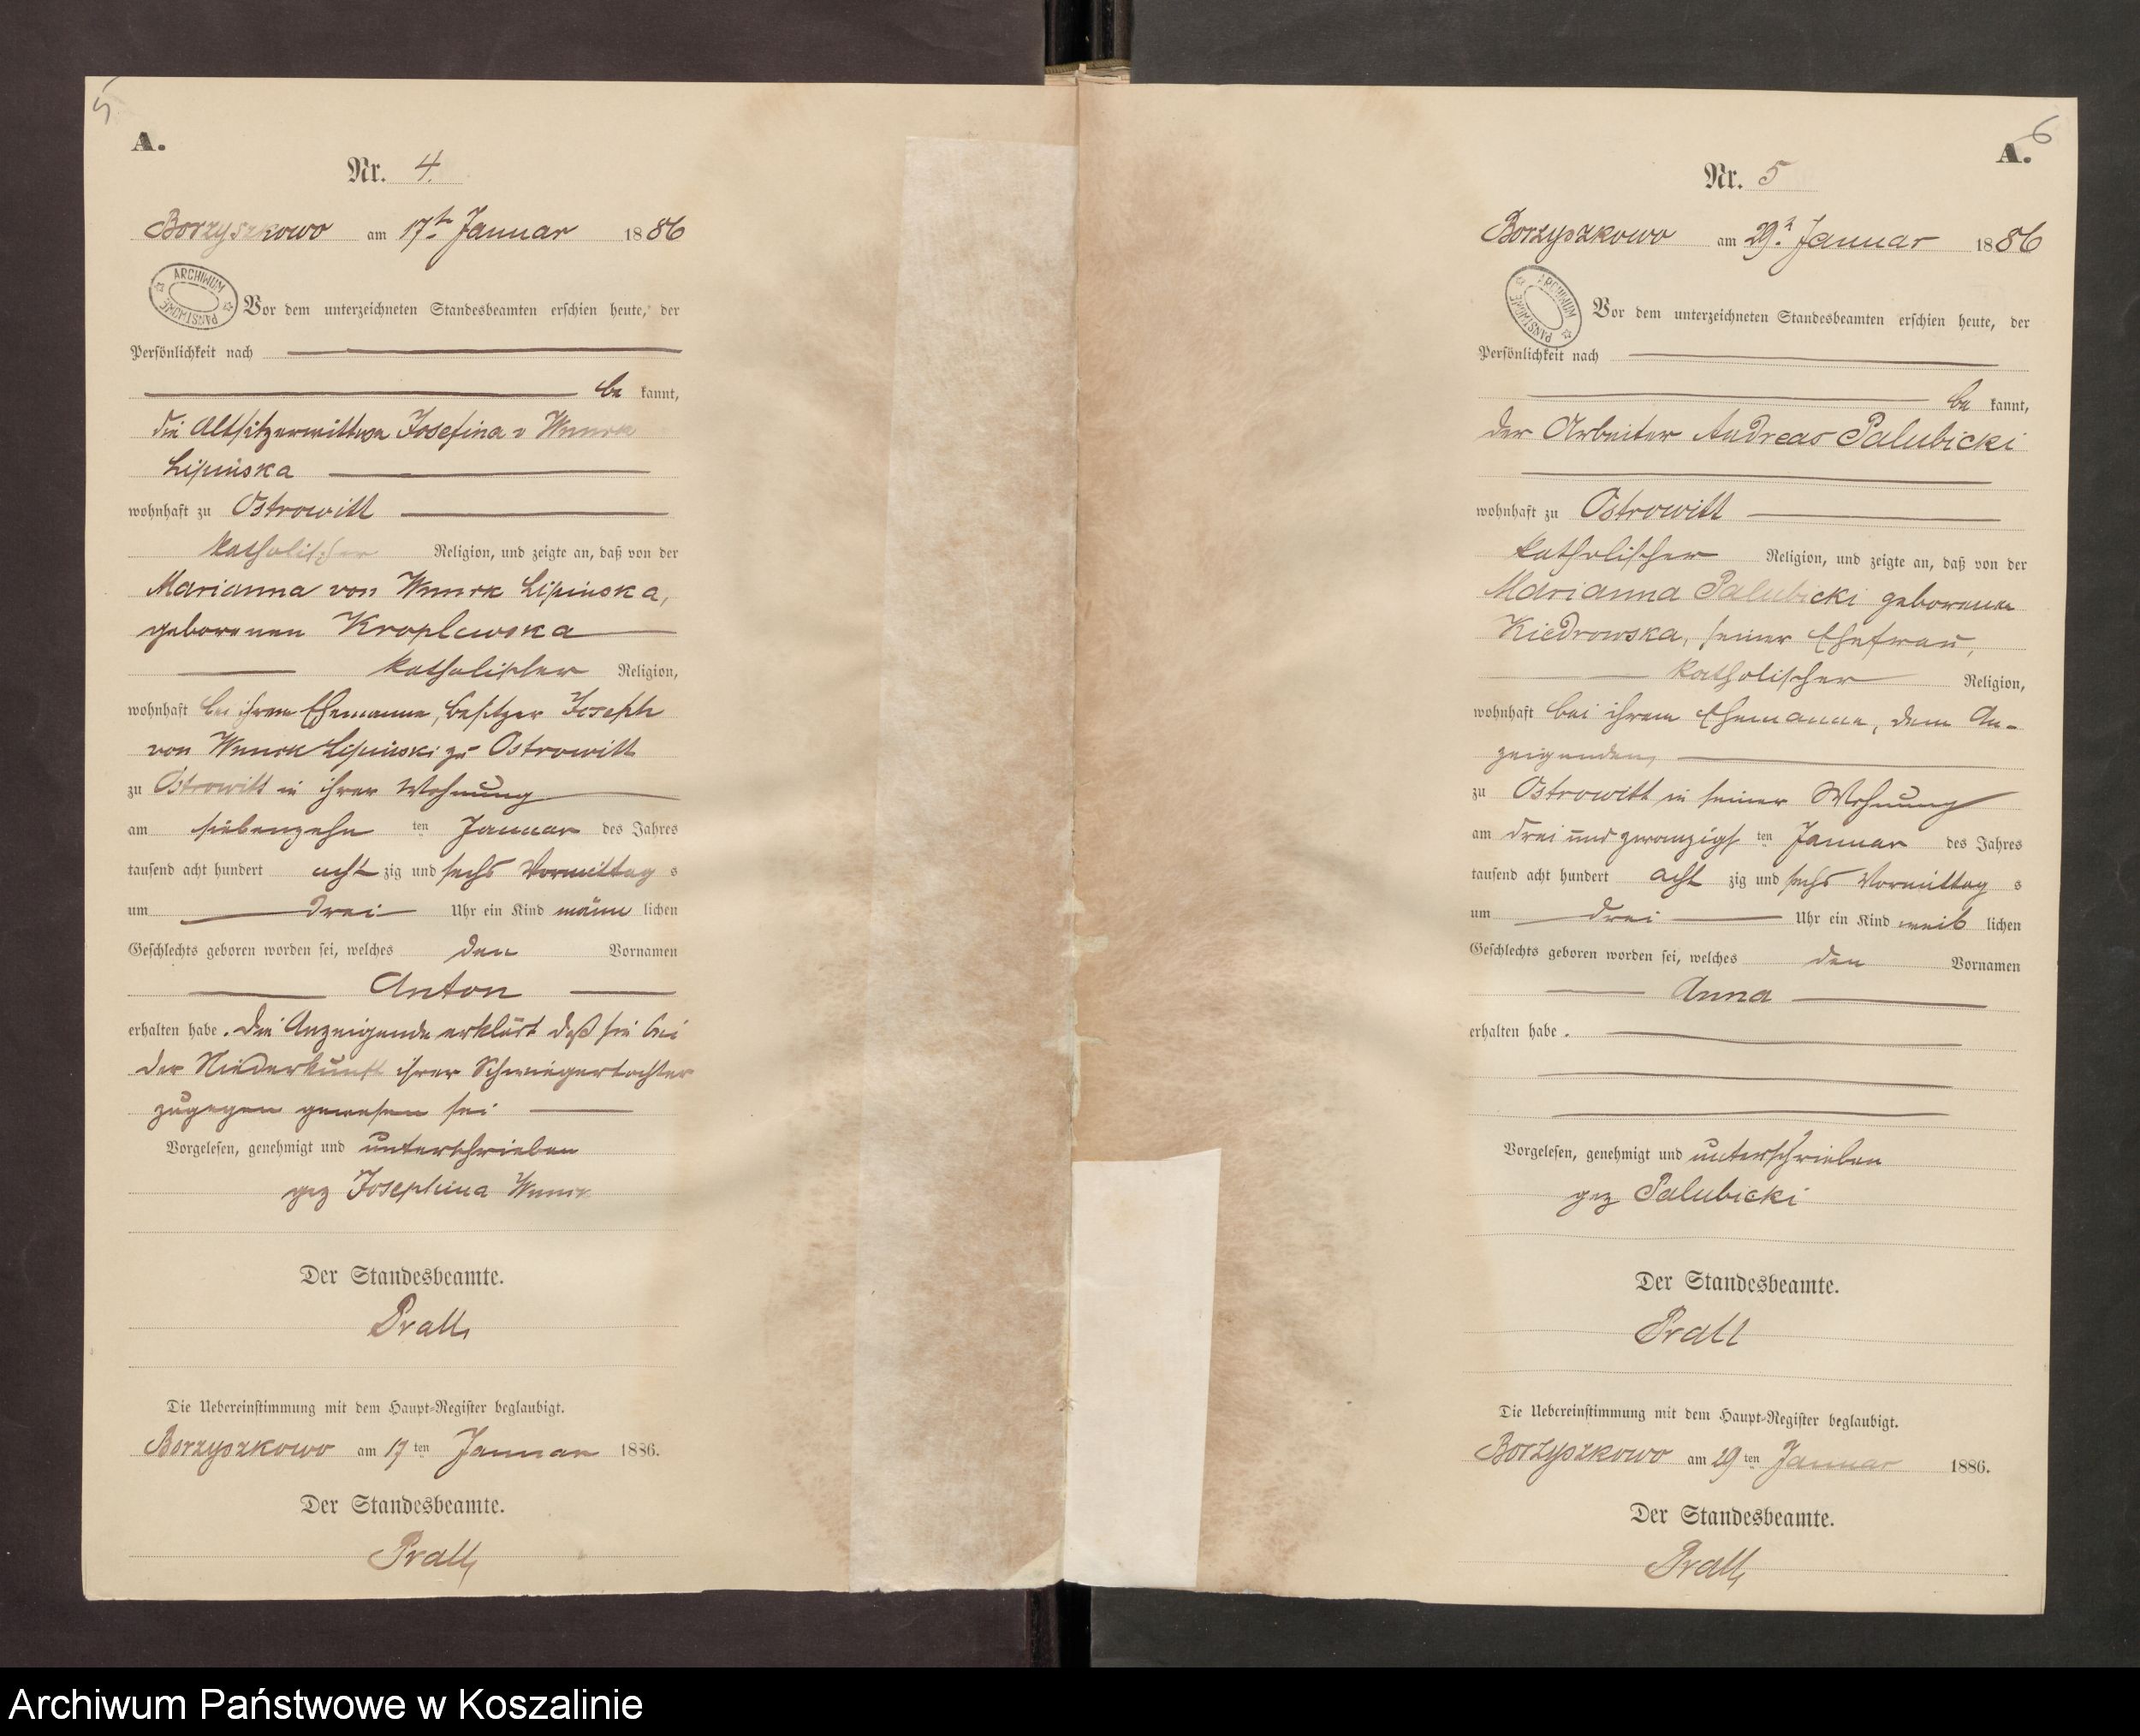 5
A.
Nr. 4.
Borzyszkowo am 17t. Januar 1886
ARCHIWUM PAŃSTWOWE
Vor dem unterzeichneten Standesbeamten erschien heute, der
Persönlichkeit nach
be kannt,
die Altsitzerwittwe Josefina v Wnuck
Lipinska
wohnhaft zu Ostrowitt
katholischer Religion, und zeigte an, daß von der
Marianna von Wnuck Lipinska,
geborenen Kroplewska
katholischer Religion,
wohnhaft bei ihrem Ehemanne, Besitzer Joseph
von Wnuck Lipinski zu Ostrowitt
zu Ostrowitt in ihrer Wohnung
am siebenzehn ten Januar des Jahres
tausend acht hundert acht zig und sechs Vormittag s
um drei Uhr ein Kind männ lichen
Geschlechts geboren worden sei, welches den Vornamen
Anton
erhalten habe. Die Anzeigende erklärt daß sie bei
der Niederkunft ihrer Schwiegertochter
zugegen gewesen sei
Vorgelesen, genehmigt und unterschrieben
gez Josephina Wnuck
Der Standesbeamte.
Prall
Die Uebereinstimmung mit dem Haupt-Register beglaubigt.
Borzyszkowo am 17 ten Januar 1886.
Der Standesbeamte.
Prall
6
A.
Nr. 5
Borzyszkowo am 29t. Januar 1886
ARCHIWUM PAŃSTWOWE
Vor dem unterzeichneten Standesbeamten erschien heute, der
Persönlichkeit nach
be kannt,
der Arbeiter Andreas Palubicki
wohnhaft zu Ostrowitt
katholischer Religion, und zeigte an, daß von der
Marianna Palubicki geborenen
Kiedrowska, seiner Ehefrau,
katholischer Religion,
wohnhaft bei ihrem Ehemanne, dem An-
zeigenden,
zu Ostrowitt in seiner Wohnung
am drei und zwanzigs ten Januar des Jahres
tausend acht hundert acht zig und sechs Vormittag s
um drei Uhr ein Kind weib lichen
Geschlechts geboren worden sei, welches den Vornamen
Anna
erhalten habe.
Vorgelesen, genehmigt und unterschrieben
gez Palubicki
Der Standesbeamte.
Prall
Die Uebereinstimmung mit dem Haupt-Register beglaubigt.
Borzyszkowo am 29 ten Januar 1886.
Der Standesbeamte.
Prall
Archiwum Państwowe w Koszalinie